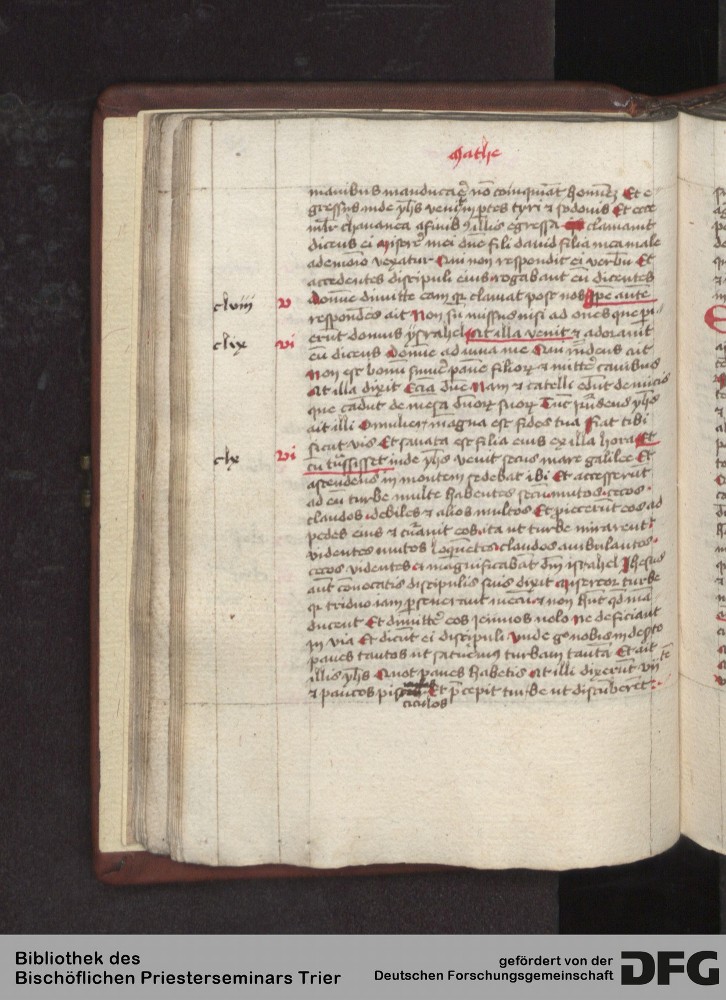 Mathe
manibus manducare no coinquinat homine Et e
gressus inde yhs venit in ptes tyri et sydonis Et ecce
mlr chananea a finib illis egressa clamauit
dicens ei Misere mei dne fili dauid filia mea male
a demonio vexatur Qui non respondit ei verbu Et
accedentes discipuli eius rogabant eu dicentes
clviii v Domine dimitte eam qr clamat post nos Ipe aute
respondes ait Non su missus nisi ad oues que pi
clix vi erut domus ysrahel At illa venit et adorauit
eu dicens Domine adiuua me Qui rndens ait
Non est bonu sumere pane filior et mitte canibus
At illa dixit Etia dne Nam et catelli edut de micis
que cadut de mesa dnor suor Tuc rndens yhs
ait illi O mulier magna est fides tua Fiat tibi
sicut vis Et sanata est filia eius ex illa hora Et
clx vi cu tnsisset inde yhs venit secus mare galilee Et
ascendens in montem sedebat ibi Et accesserut
ad eu turbe multe habentes secu mutos cecos
claudos debiles et alios multos Et piecerut eos ad
pedes eius et curauit eos ita ut turbe mirarent
videntes mutos loquetes claudos ambulantes
cecos videntes et magnificabat dm israhel Jhesus
aut conuocatis discipulis suis dixit Misereor turbe
qr triduo iam pseuerant mecu et non hnt qd ma
ducent Et dimitte eos ieiunos nolo Ne deficiant
in via Et dicut ei discipuli Vnde g nobis in deserto
panes tantos ut saturemus turbam tanta Et ait
illis yhs Quot panes habetis At illi dixerut vii
te
et paucos pis Et pcepit turbe ut discuberet
ciculos
Bibliothek des
Bischöflichen Priesterseminars Trier
gefördert von der
Deutschen Forschungsgemeinschaft
DFG